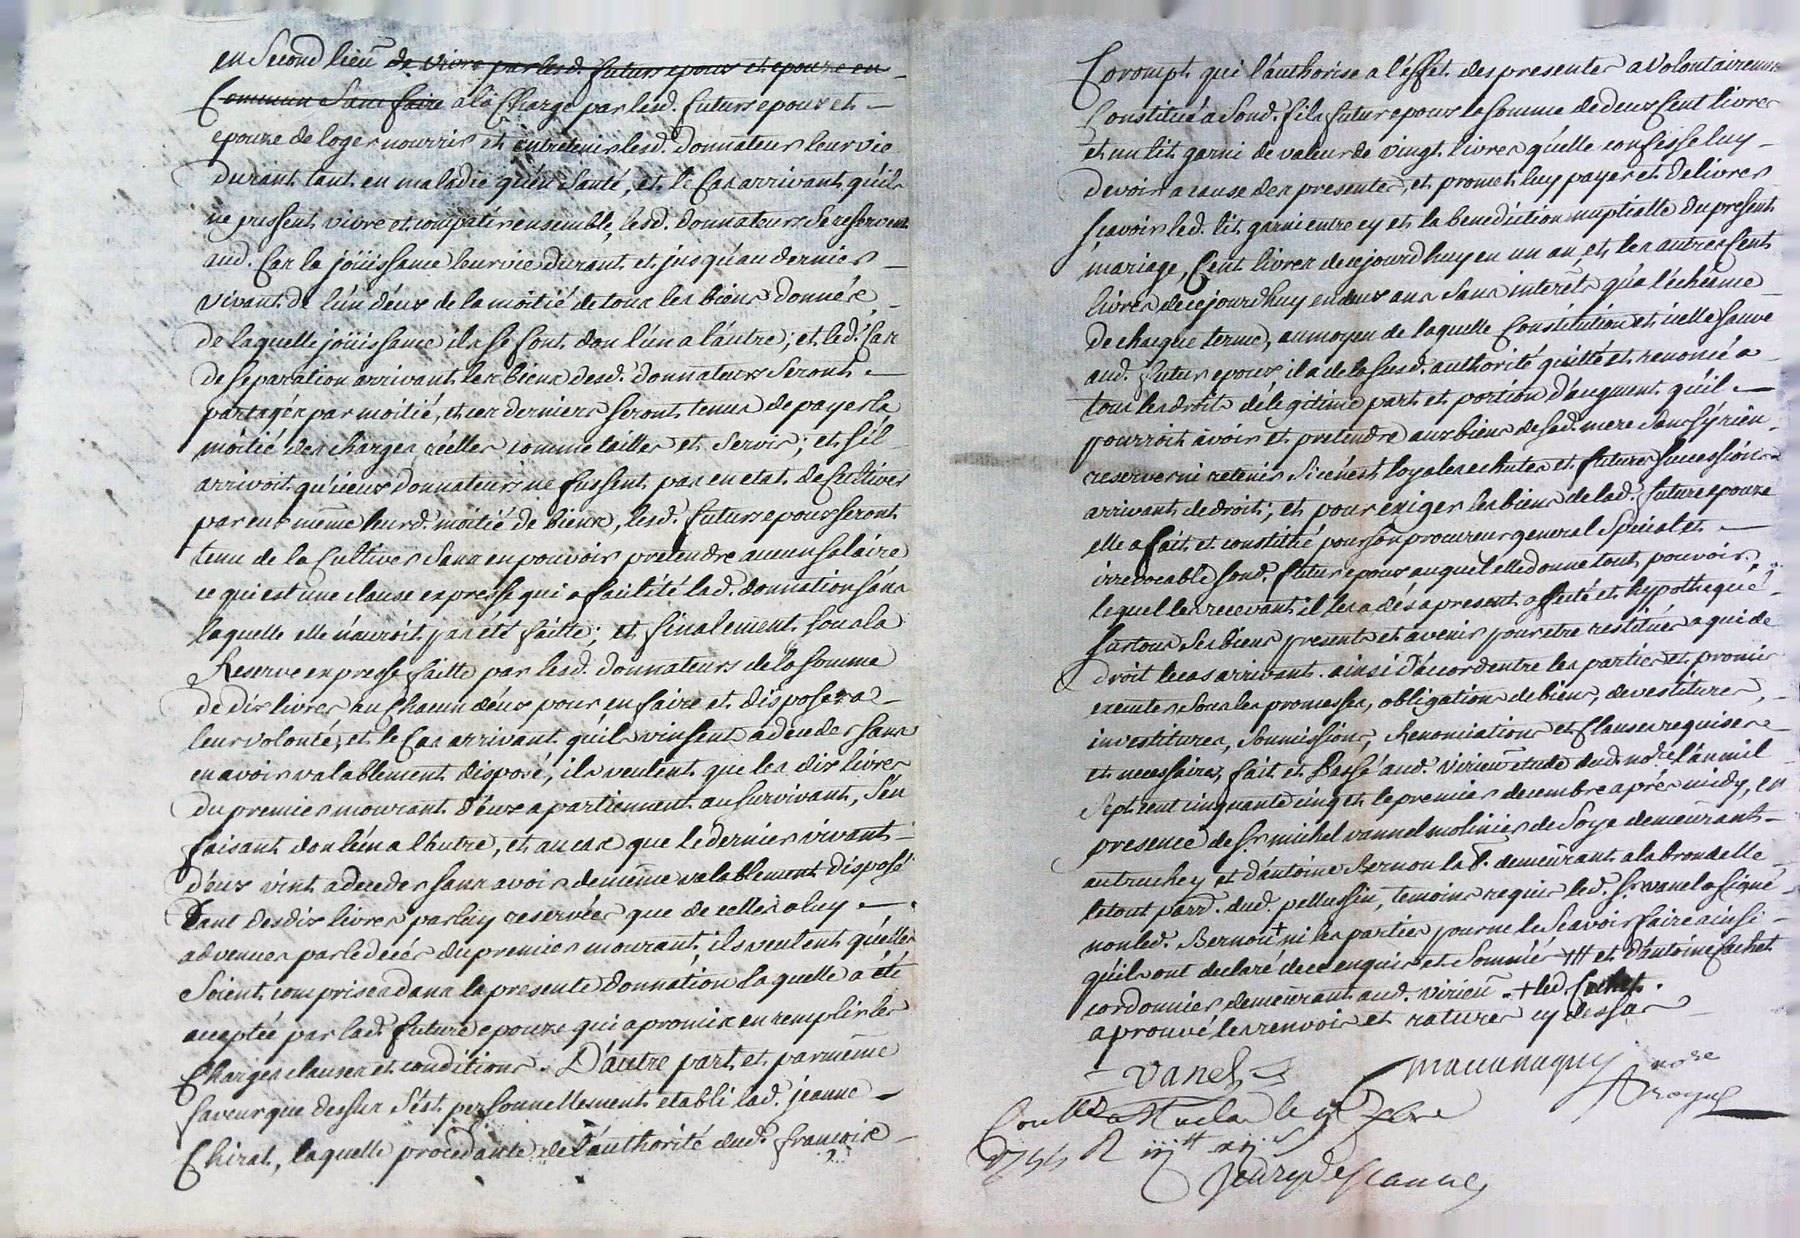 en Second lieu de vivre par lesd. futurs epoux et epouze en
Commun Sans faire a la Charge par lesd. futurs epoux et
epouze de loger nourrir et entretenir lesd. donnateurs leur vie
durant tant en maladie qu'en Santé, et le Cas arrivant qu'ils
ne pussent vivre et compatir ensemble, lesd. donnateurs Se reservent
aud. Cas la joüissance leur vie durant et jusqu'au dernier
vivant de l'un d'eux de la moitié de tous les biens donnés,
de laquelle joüissance ils se font don l'un a l'autre; et led. Cas
de Separation arrivant les biens desd. donnateurs Seront
partagés par moitié, et ces derniers seront tenus de payer la
moitié des charges réelles comme tailles et Servis; et s'il
arrivoit qu'iceux donnateurs ne fussent pas en etat de Cultiver
par eux même leurd. moitié de biens, lesd. futurs epoux seront
tenu de la Cultiver Sans en pouvoir pretendre aucun salaire
ce qui est une clause expresse qui a facilité lad. donnation sans
laquelle elle n'auroit pas eté faitte; et finalement sous la
Reserve expresse faitte par lesd. donnateurs de la somme
de dix livres au Chacun d'eux pour en faire et disposer a
leur volonté, et le Cas arrivant qu'ils vinsent a deceder sans
en avoir valablement disposé, ils veulent que les dix livres
du premier mourant d'eux apartiennent au Survivant, S'en
faisant don l'un a l'autre, et au cas que le dernier vivant
d'eux vint a deceder sans avoir de même valablement disposé
tant desdix livres par luy reservées que de celles a luy
advenues par le decés du premier mourant, ils veulent qu'elles
Soient comprises dans la presente donnation laquelle a été
acceptée par lad. future epouze qui a promis en remplir les
Charges clauses et conditions. D'autre part et par même
faveur que dessus S'est personnellement etabli lad. jeanne
Chirat, laquelle procedante de l'authorité dud. françois
Corompt qui l'authorise a l'effet des presentes a volontairement
Constitué a Sond. fils futur epoux la Somme de deux Cent livres
et un lit garni de valeur de vingt livres qu'elle confesse luy
devoir a cause des presentes, et promet luy payer et delivrer
sçavoir led. lit garni entre cy et la benediction nuptialle du present
mariage, Cent livres de ce jourd'huy en un an, et les autres Cent
livres de ce jourd'huy en deux ans Sans interêt qu'a l'echeance
de chaque terme, au moyen de laquelle Constitution et icelle Sauve
aud. futur epoux il a de la susd. authorité quitté et renoncé a
tous les droits de légitime part et portion d'augment qu'il
pourroit avoir et pretendre aux biens de sad. mere Sans sy rien
reserver ni retenir Si ce n'est loyales echutes et futures Successions
arrivant de droit; et pour exiger les biens de lad. future epouze
elle a fait et constitué pour son procureur general Special et
irrevocable sond. futur epoux auquel elle donne tout pouvoir,
lequel les recevant il les a dés a present affecté et hypothequé
sur tous Ses biens presents et avenir pour etre restitués a qui de
droit le cas arrivant. ainsi d'accord entre les parties et promis
executer Sous les promesses, obligations de biens, devestitures,
investitures, Soumissions, Renonciations et Clauses requises
et necessaires, fait et Passé aud. virieu etude dud. no.re l'an mil
Sept cent cinquante cinq et le premier decembre aprés midy, en
presence de sr michel vannel molinier de Soye demeurant
autruchey et d'antoine Bernou lab.r demeurant a la brondelle
le tout parr. dud. pellussin, temoins requis led. Sr vanel a Signé
non led. Bernou + ni les parties pour ne le Scavoir faire ainsi
qu'ils ont declaré de ce enquis et Sommés ++ et d'antoine Cachet
cordonnier demeurant aud. virieu. + led. Cachet.
aprouvé les renvois et ratures cy dessus
Vanel
no.re
Royal
le 9 Xbre
1755 R